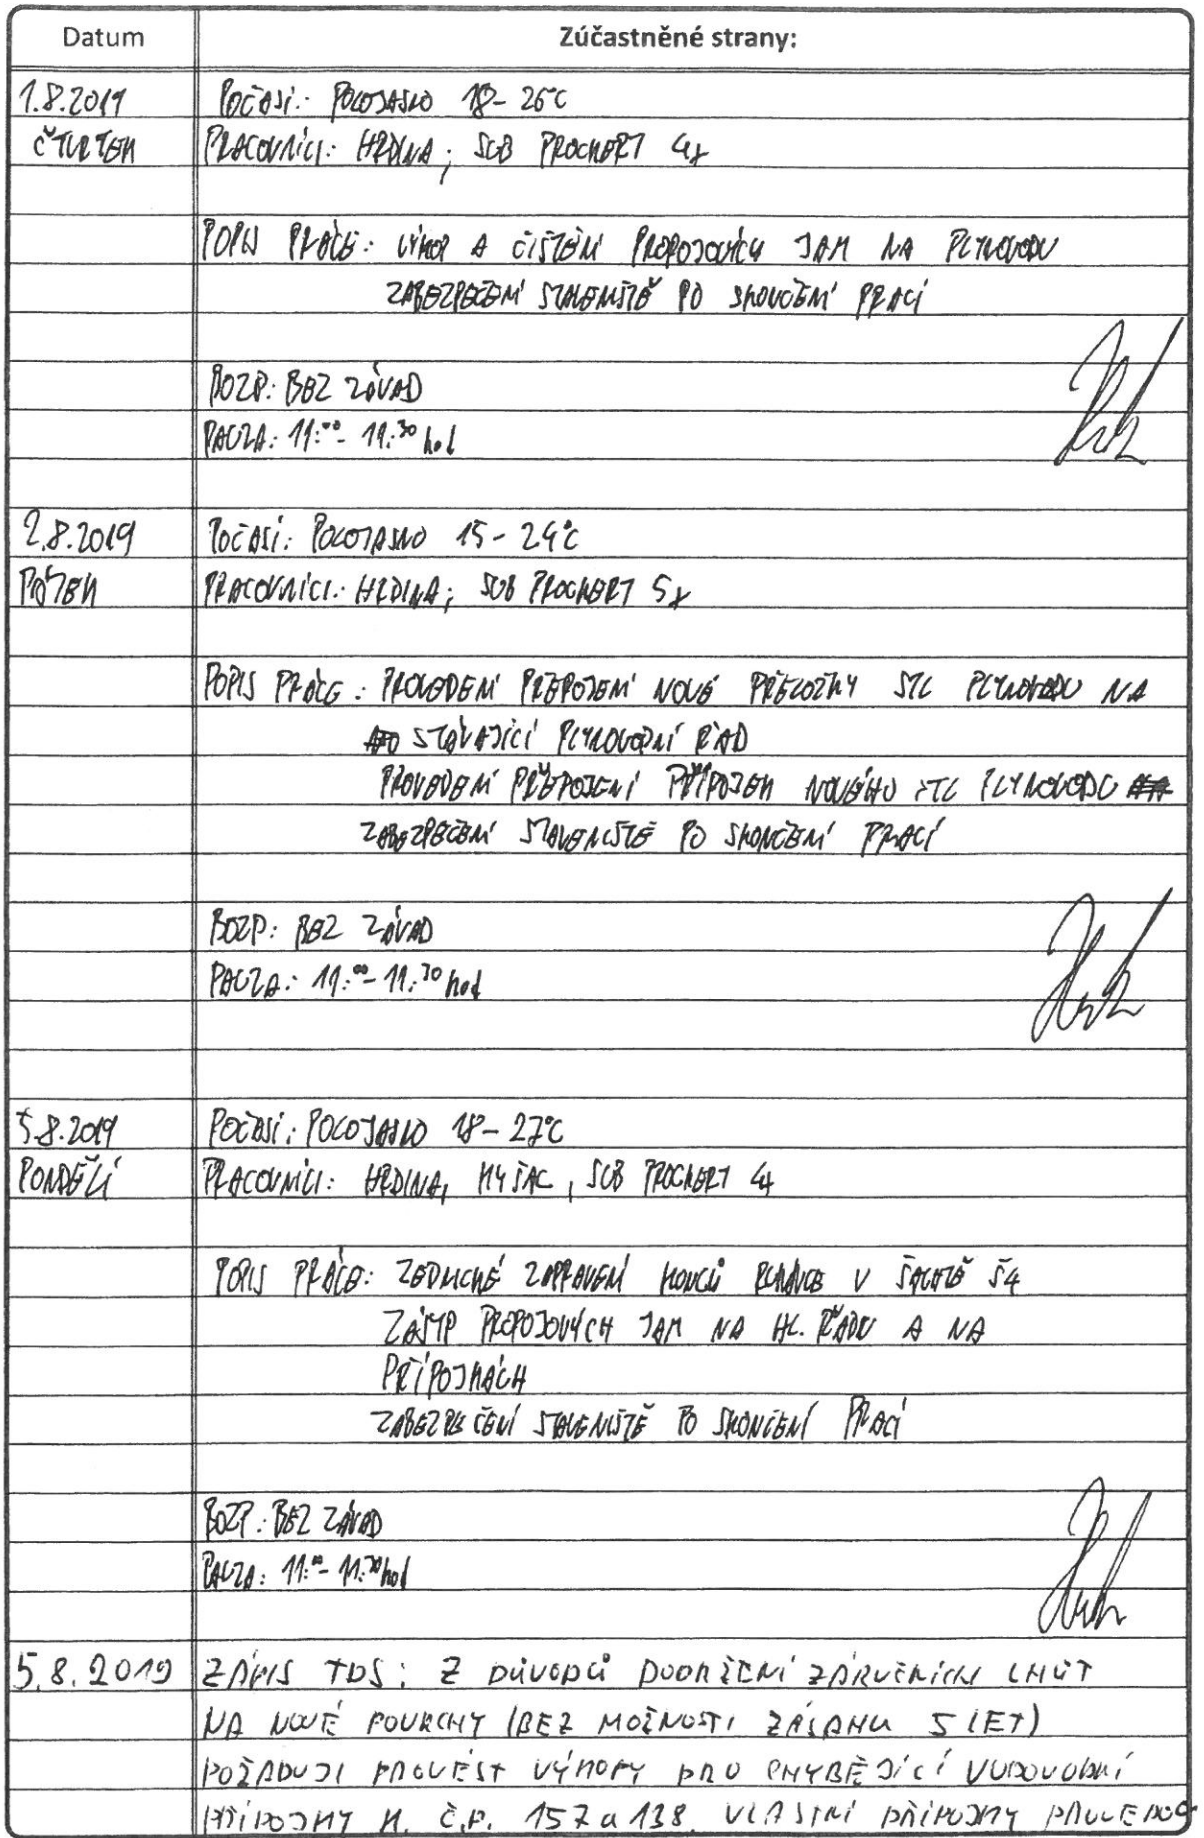 Datum Zúčastněné strany:
1.8.2019 POČASÍ: POLOJASNO 18-26°C
ČTVRTEK PRACOVNÍCI: HRDINA; SUB PROCHERT 4x
POPIS PRÁCE: VÝKOP A ČIŠTĚNÍ PROPOJOVÝCH JAM NA PLYNOVODU
ZABEZPEČENÍ STAVENIŠTĚ PO SKONČENÍ PRACÍ
BOZP: BEZ ZÁVAD
PAUZA: 11:00 - 11:30 hod
2.8.2019 POČASÍ: POLOJASNO 15-24°C
PÁTEK PRACOVNÍCI: HRDINA; SUB PROCHERT 5x
POPIS PRÁCE: PROVEDENÍ PŘEPOJENÍ NOVÉ PŘELOŽKY STL PLYNOVODU NA
STÁVAJÍCÍ PLYNOVODNÍ ŘAD
PROVEDENÍ PŘEPOJENÍ PŘÍPOJEK NOVÉHO STL PLYNOVODU
ZABEZPEČENÍ STAVENIŠTĚ PO SKONČENÍ PRACÍ
BOZP: BEZ ZÁVAD
PAUZA: 11:00 - 11:30 hod
5.8.2019 POČASÍ: POLOJASNO 18-27°C
PONDĚLÍ PRACOVNÍCI: HRDINA, MYŠÁC, SUB PROCHERT 4x
POPIS PRÁCE: ZEDNICKÉ ZAPRAVENÍ KONCŮ V ŠACHTĚ Š4
ZÁSYP PROPOJOVÝCH JAM NA HL. ŘADU A NA
PŘÍPOJKÁCH
ZABEZPEČENÍ STAVENIŠTĚ PO SKONČENÍ PRACÍ
BOZP: BEZ ZÁVAD
PAUZA: 11:00 - 11:30 hod
5.8.2019 ZÁPIS TDS: Z DŮVODŮ DODRŽENÍ ZÁRUČNÍCH LHŮT
NA NOVÉ POVRCHY (BEZ MOŽNOSTI ZÁSAHU 5 LET)
POŽADUJI PROVÉST VÝKOPY PRO CHYBĚJÍCÍ VODOVODNÍ
PŘÍPOJKY K. Č.P. 157 a 138. VLASTNÍ PŘÍPOJKY PROVEDOU